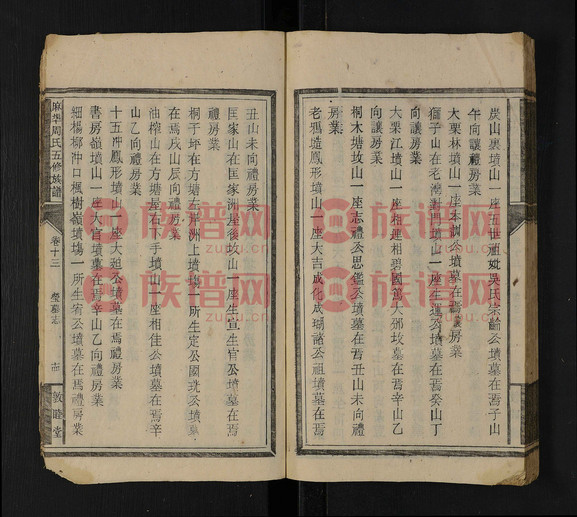 炭山裏墳山一座五世祖妣吳氏宗齡公墳墓在焉子山
午向讓禮房業
大栗林墳山一座本訓公墳墓在焉讓房業
獅子山在老灣對門墳山一座生運公墳墓在焉癸山丁
向讓房業
大栗江墳山一座相連相碧國篤大㧕墳墓在焉辛山乙
向讓房業
桐木塘坟山一座志禮公思鑑公墳墓在焉丑山未向禮
房業
老鴉造鳳形墳山一座大吉成化成瑚諸公祖墳墓在焉
丑山未向禮房業
匡家山在匡家洲屋後坟山一座生宣生官公墳墓在焉
禮房業
桐子坪在方塘左岸洲上墳塲一所生定公國珖公墳墓
在焉戌山辰向禮房業
油榨山在方塘屋右下手墳山一座相佳公墳墓在焉辛
山乙向禮房業
十五坪鳳形墳山一座大起公墳墓在焉禮房業
書房嶺墳山一座大官墳墓在焉辛山乙向禮房業
細楊柳沖口楓樹嶺墳塲一所生宥公墳墓在焉禮房業
麻峯周氏五修族譜
卷十三
塋墓志
敦睦堂
族谱网
zupu.cn
族谱网
zupu.cn
族谱网
zupu.cn
族谱网
zupu.cn